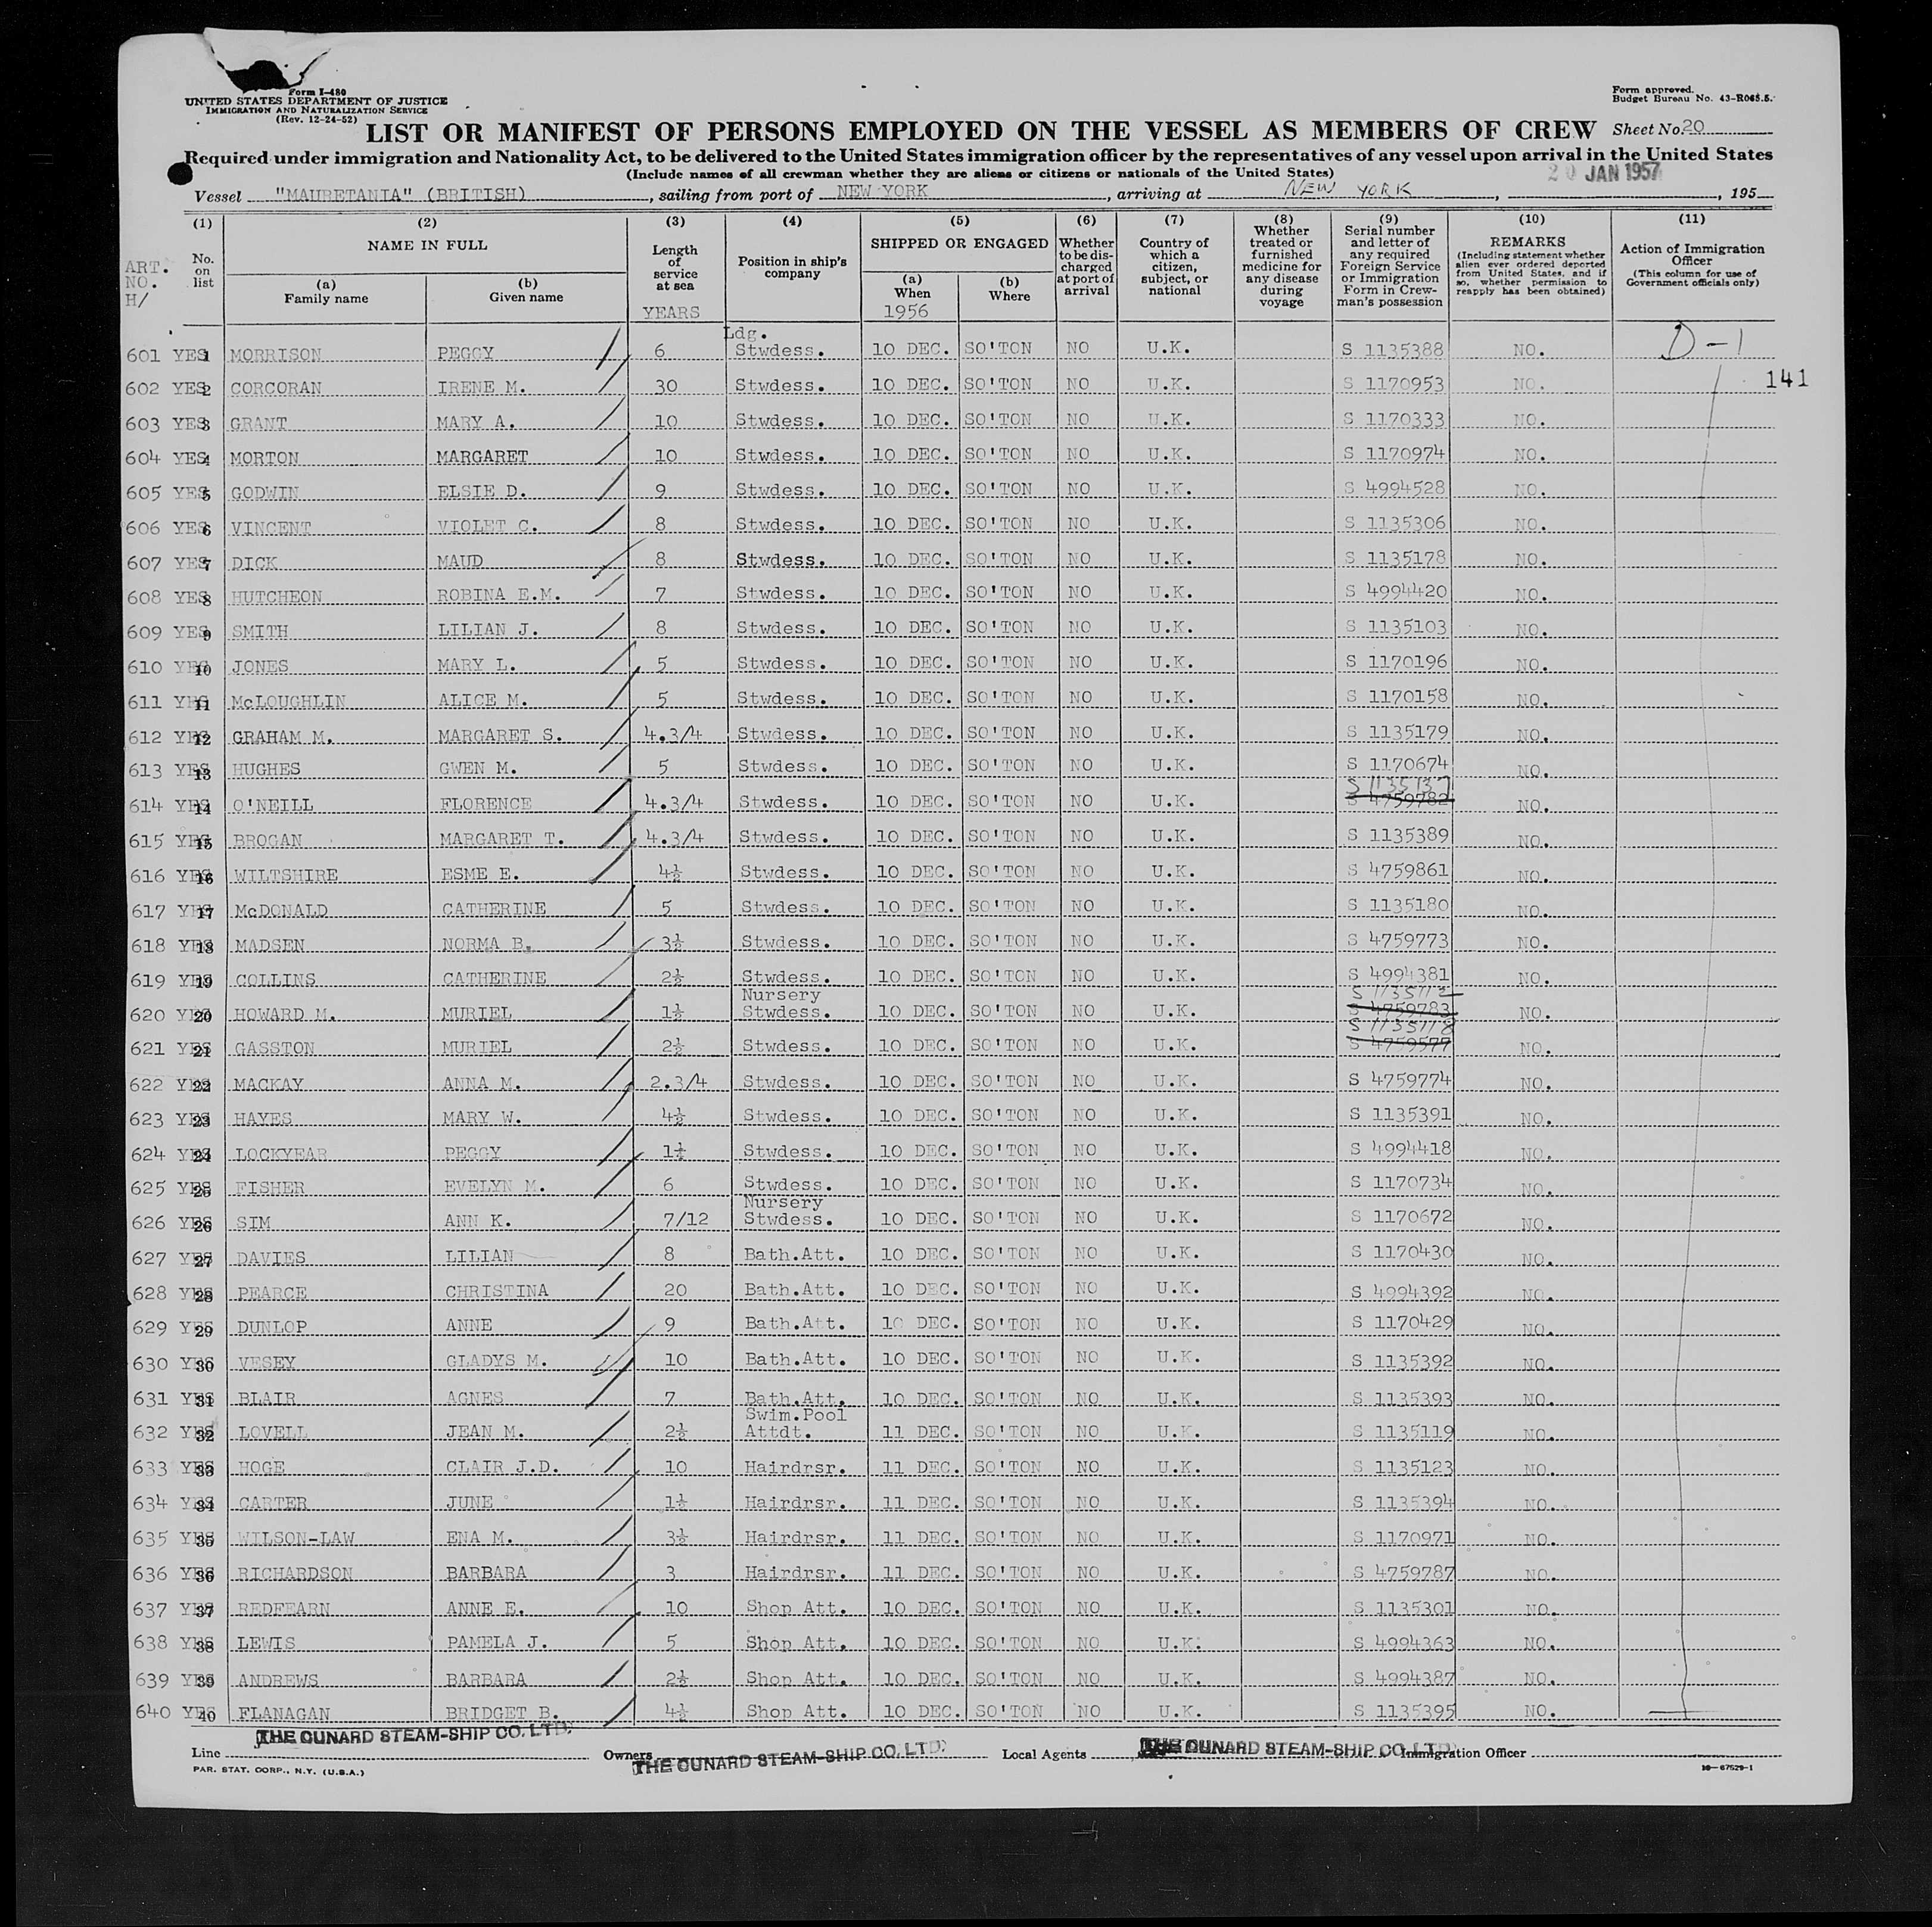 Form I-480
UNITED STATES DEPARTMENT OF JUSTICE
IMMIGRATION AND NATURALIZATION SERVICE
(Rev. 12-24-52)
Form approved.
Budget Bureau No. 43-R065.5.
LIST OR MANIFEST OF PERSONS EMPLOYED ON THE VESSEL AS MEMBERS OF CREW Sheet No. 20
Required under immigration and Nationality Act, to be delivered to the United States immigration officer by the representatives of any vessel upon arrival in the United States
(Include names of all crewman whether they are aliens or citizens or nationals of the United States)
20 JAN 1957
Vessel "MAURETANIA" (BRITISH), sailing from port of NEW YORK, arriving at NEW YORK, , 195
(1) (2) (3) (4) (5) (6) (7) (8) (9) (10) (11)
ART. NO. H/ No. on list NAME IN FULL (a) Family name (b) Given name Length of service at sea YEARS Position in ship's company SHIPPED OR ENGAGED (a) When 1956 (b) Where Whether to be discharged at port of arrival Country of which a citizen, subject, or national Whether treated or furnished medicine for any disease during voyage Serial number and letter of any required Foreign Service or Immigration Form in Crewman's possession REMARKS (Including statement whether alien ever ordered deported from United States, and if so, whether permission to reapply has been obtained) Action of Immigration Officer (This column for use of Government officials only)
601 YES 1 MORRISON PEGGY 6 Ldg. Stwdess. 10 DEC. SO'TON NO U.K. S 1135388 NO. D-1
602 YES 2 CORCORAN IRENE M. 30 Stwdess. 10 DEC. SO'TON NO U.K. S 1170953 NO. 141
603 YES 3 GRANT MARY A. 10 Stwdess. 10 DEC. SO'TON NO U.K. S 1170333 NO.
604 YES 4 MORTON MARGARET 10 Stwdess. 10 DEC. SO'TON NO U.K. S 1170974 NO.
605 YES 5 GODWIN ELSIE D. 9 Stwdess. 10 DEC. SO'TON NO U.K. S 4994528 NO.
606 YES 6 VINCENT VIOLET C. 8 Stwdess. 10 DEC. SO'TON NO U.K. S 1135306 NO.
607 YES 7 DICK MAUD 8 Stwdess. 10 DEC. SO'TON NO U.K. S 1135178 NO.
608 YES 8 HUTCHEON ROBINA E.M. 7 Stwdess. 10 DEC. SO'TON NO U.K. S 4994420 NO.
609 YES 9 SMITH LILIAN J. 8 Stwdess. 10 DEC. SO'TON NO U.K. S 1135103 NO.
610 YES 10 JONES MARY L. 5 Stwdess. 10 DEC. SO'TON NO U.K. S 1170196 NO.
611 YES 11 McLOUGHLIN ALICE M. 5 Stwdess. 10 DEC. SO'TON NO U.K. S 1170158 NO.
612 YES 12 GRAHAM M. MARGARET S. 4.3/4 Stwdess. 10 DEC. SO'TON NO U.K. S 1135179 NO.
613 YES 13 HUGHES GWEN M. 5 Stwdess. 10 DEC. SO'TON NO U.K. S 1170674 NO.
614 YES 14 O'NEILL FLORENCE 4.3/4 Stwdess. 10 DEC. SO'TON NO U.K. S 1135137 S 4759782 NO.
615 YES 15 BROGAN MARGARET T. 4.3/4 Stwdess. 10 DEC. SO'TON NO U.K. S 1135389 NO.
616 YES 16 WILTSHIRE ESME E. 4½ Stwdess. 10 DEC. SO'TON NO U.K. S 4759861 NO.
617 YES 17 McDONALD CATHERINE 5 Stwdess. 10 DEC. SO'TON NO U.K. S 1135180 NO.
618 YES 18 MADSEN NORMA B. 3½ Stwdess. 10 DEC. SO'TON NO U.K. S 4759773 NO.
619 YES 19 COLLINS CATHERINE 2½ Stwdess. 10 DEC. SO'TON NO U.K. S 4994381 NO.
620 YES 20 HOWARD M. MURIEL 1½ Nursery Stwdess. 10 DEC. SO'TON NO U.K. S 4759783 NO.
621 YES 21 GASSTON MURIEL 2½ Stwdess. 10 DEC. SO'TON NO U.K. S 1135118 S 4759577 NO.
622 YES 22 MACKAY ANNA M. 2.3/4 Stwdess. 10 DEC. SO'TON NO U.K. S 4759774 NO.
623 YES 23 HAYES MARY W. 4½ Stwdess. 10 DEC. SO'TON NO U.K. S 1135391 NO.
624 YES 24 LOCKYEAR PEGGY 1¼ Stwdess. 10 DEC. SO'TON NO U.K. S 4994418 NO.
625 YES 25 FISHER EVELYN M. 6 Stwdess. 10 DEC. SO'TON NO U.K. S 1170734 NO.
626 YES 26 SIM ANN K. 7/12 Nursery Stwdess. 10 DEC. SO'TON NO U.K. S 1170672 NO.
627 YES 27 DAVIES LILIAN 8 Bath.Att. 10 DEC. SO'TON NO U.K. S 1170430 NO.
628 YES 28 PEARCE CHRISTINA 20 Bath.Att. 10 DEC. SO'TON NO U.K. S 4994392 NO.
629 YES 29 DUNLOP ANNE 9 Bath.Att. 10 DEC. SO'TON NO U.K. S 1170429 NO.
630 YES 30 VESEY GLADYS M. 10 Bath.Att. 10 DEC. SO'TON NO U.K. S 1135392 NO.
631 YES 31 BLAIR AGNES 7 Bath.Att. 10 DEC. SO'TON NO U.K. S 1135393 NO.
632 YES 32 LOVELL JEAN M. 2½ Swim.Pool Attdt. 11 DEC. SO'TON NO U.K. S 1135119 NO.
633 YES 33 HOGE CLAIR J.D. 10 Hairdrsr. 11 DEC. SO'TON NO U.K. S 1135123 NO.
634 YES 34 CARTER JUNE 1½ Hairdrsr. 11 DEC. SO'TON NO U.K. S 1135394 NO.
635 YES 35 WILSON-LAW ENA M. 3½ Hairdrsr. 11 DEC. SO'TON NO U.K. S 1170971 NO.
636 YES 36 RICHARDSON BARBARA 3 Hairdrsr. 11 DEC. SO'TON NO U.K. S 4759787 NO.
637 YES 37 REDFEARN ANNE E. 10 Shop Att. 10 DEC. SO'TON NO U.K. S 1135301 NO.
638 YES 38 LEWIS PAMELA J. 5 Shop Att. 10 DEC. SO'TON NO U.K. S 4994363 NO.
639 YES 39 ANDREWS BARBARA 2½ Shop Att. 10 DEC. SO'TON NO U.K. S 4994387 NO.
640 YES 40 FLANAGAN BRIDGET B. 4½ Shop Att. 10 DEC. SO'TON NO U.K. S 1135395 NO.
Line THE CUNARD STEAM-SHIP CO. LTD. Owners THE CUNARD STEAM-SHIP CO. LTD. Local Agents THE CUNARD STEAM-SHIP CO. LTD. Immigration Officer
PAR. STAT. CORP., N.Y. (U.S.A.)
16—67529-1